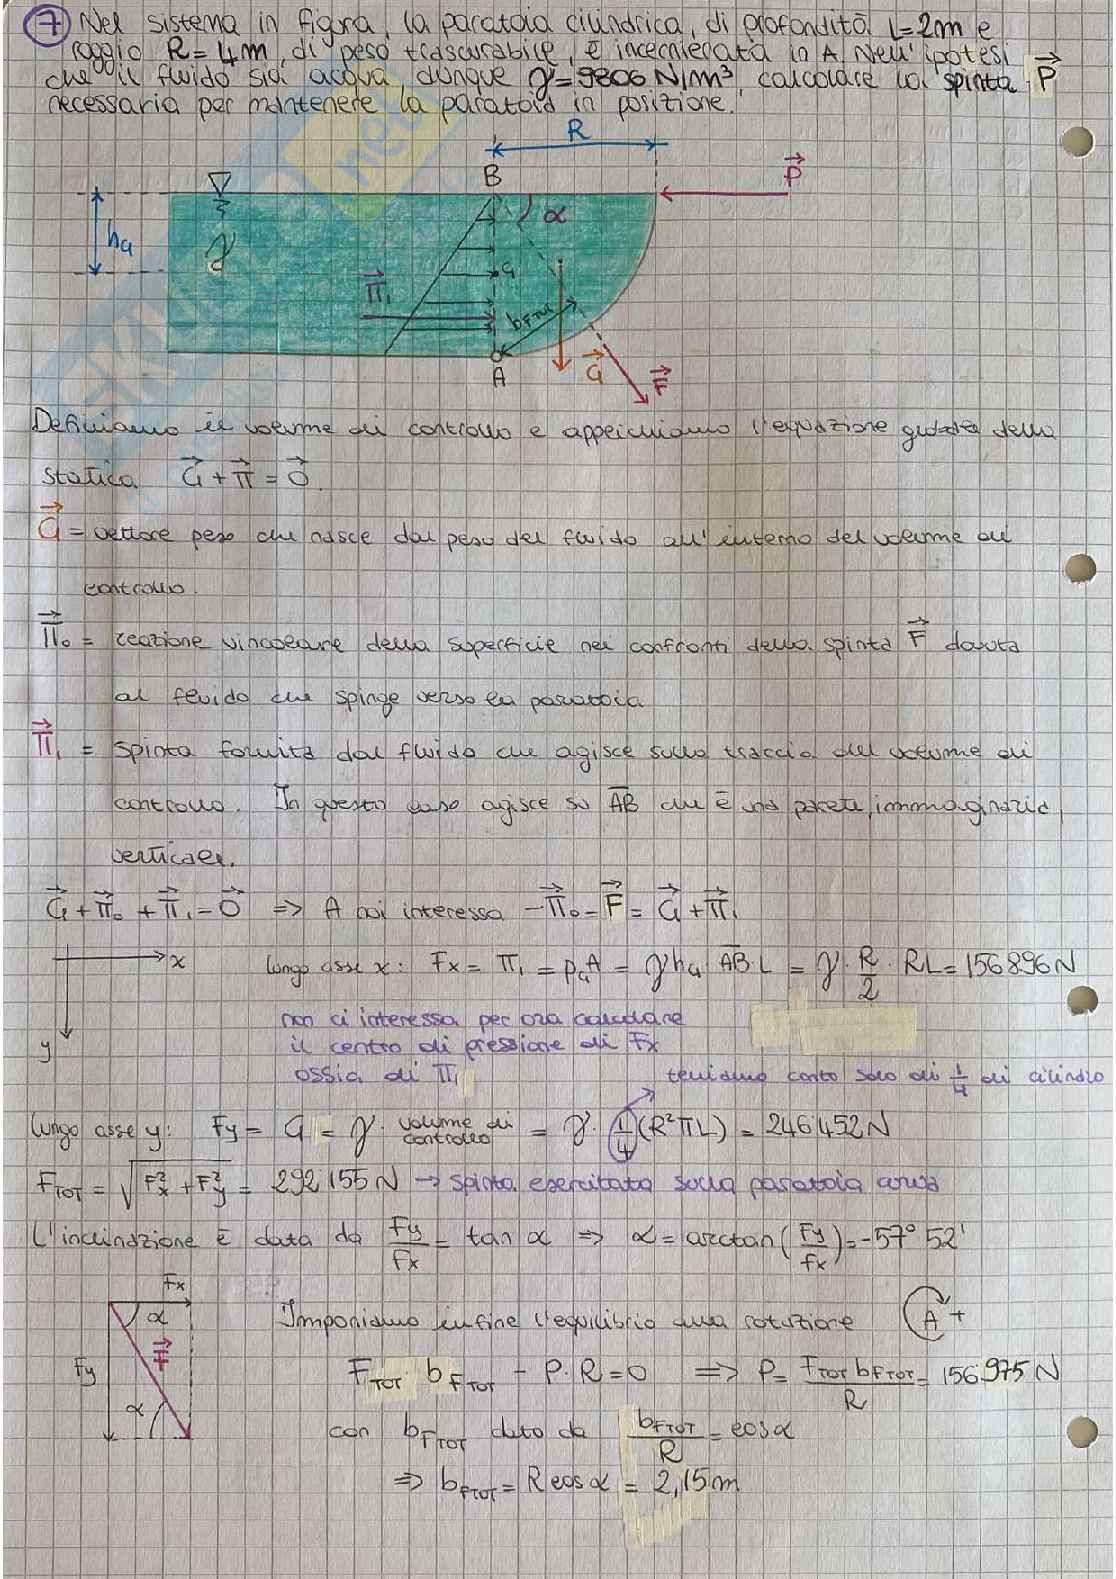 7 Nel sistema in figura, la paratoia cilindrica, di profondità L=2m e
raggio R=4m, di peso trascurabile, è incernierata in A. Nell'ipotesi
che il fluido sia acqua dunque γ=9806 N/m³, calcolare la spinta P
necessaria per mantenere la paratoia in posizione.
R
B
P
α
hG
γ
G
Π₁
bFTOT
A
G
F
Definiamo il volume di controllo e applichiamo l'equazione globale della
statica G + Π = 0.
G = vettore peso che nasce dal peso del fluido all'interno del volume di
controllo.
Π₀ = reazione vincolare della superficie nei confronti della spinta F dovuta
al fluido che spinge verso la paratoia
Π₁ = spinta fornita dal fluido che agisce sulla traccia del volume di
controllo. In questo caso agisce su AB che è una parete immaginaria
verticale.
G + Π₀ + Π₁ = 0 ⇒ A noi interessa -Π₀ = F = G + Π₁
x
y
lungo asse x: Fx = Π₁ = pG A = γ hG AB·L = γ · R/2 · RL = 156896 N
non ci interessa per ora calcolare
il centro di pressione di Fx
ossia di Π₁
teniamo conto solo di 1/4 di cilindro
lungo asse y: Fy = G = γ · volume di controllo = γ · 1/4 (R²πL) = 246452 N
FTOT = √(Fx² + Fy²) = 292155 N → spinta esercitata sulla paratoia curva
L'inclinazione è data da Fy/Fx = tan α ⇒ α = arctan(Fy/Fx) = -57° 52'
Fx
α
F
Fy
α
Imponiamo infine l'equilibrio alla rotazione A +
FTOT · bFTOT - P·R = 0 ⇒ P = FTOT bFTOT / R = 156975 N
con bFTOT dato da bFTOT/R = cos α
⇒ bFTOT = R cos α = 2,15m